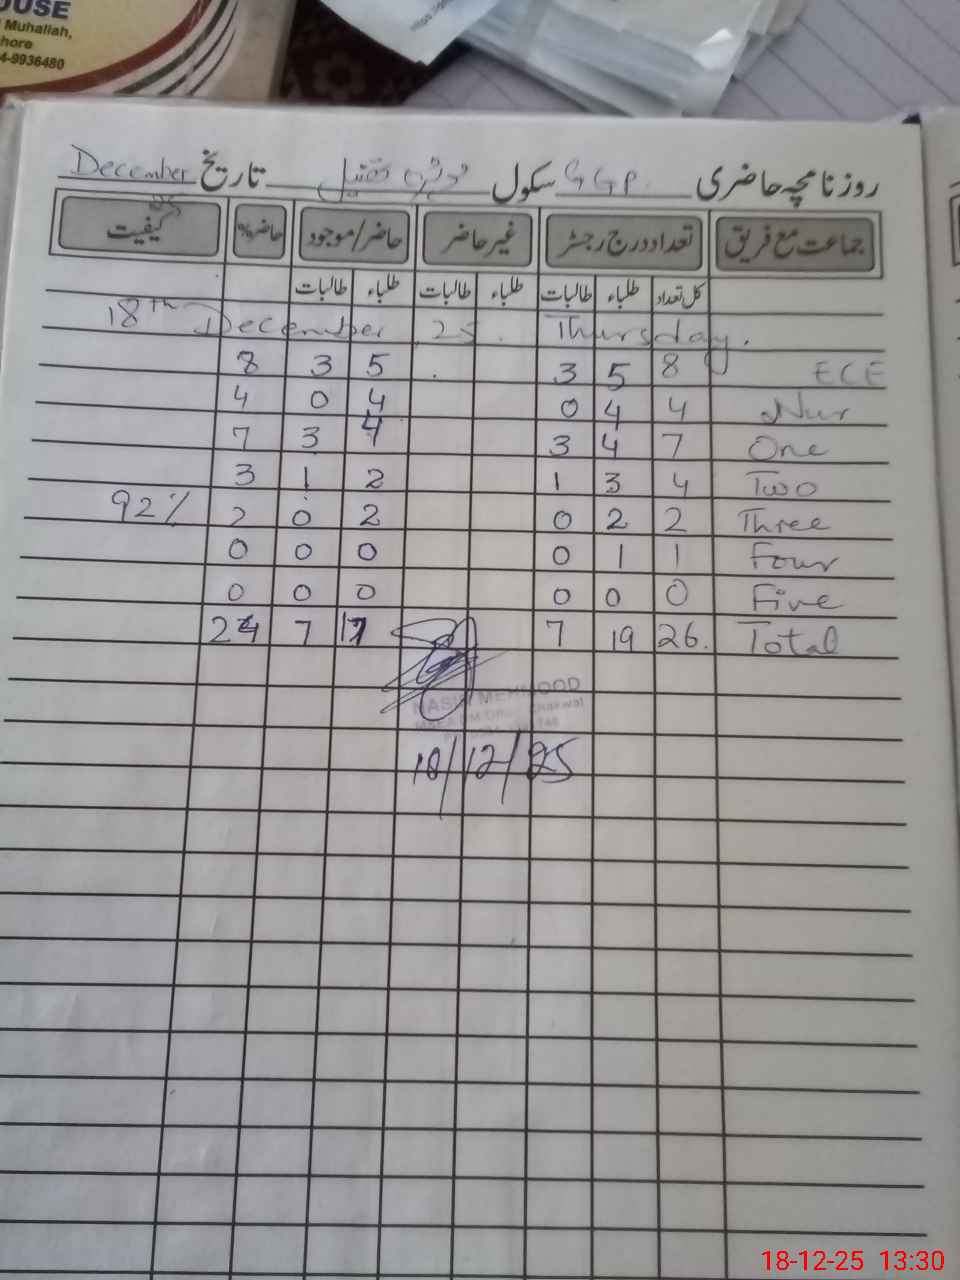 OUSE
Muhallah,
hore
4-9936480
روزنامچہ حاضری G G P. سکول تاریخ December
جماعت مع فریق تعداد درج رجسٹر غیر حاضر حاضر/موجود حاضر% کیفیت
کل تعداد طلباء طالبات طلباء طالبات طلباء طالبات
18th December 25. Thursday.
8 3 5 3 5 8 ECE
4 0 4 0 4 4 Nur
7 3 4 3 4 7 One
3 1 2 1 3 4 Two
92% 2 0 2 0 2 2 Three
0 0 0 0 1 1 Four
0 0 0 0 0 0 Five
24 7 17 7 19 26. Total
MEHMOOD
18/12/25
18-12-25 13:30